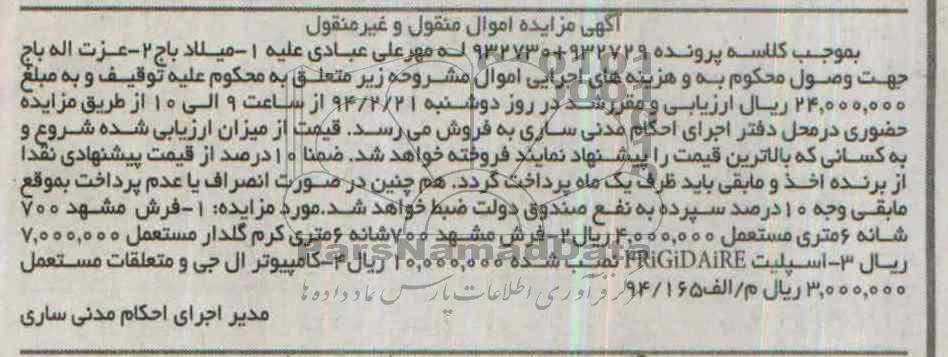 آگهی مزایده اموال منقول و غیرمنقول
بموجب کلاسه پرونده ۹۳۲۷۲۹+۹۳۲۷۳۰ له مهرعلی عبادی علیه ۱-میلاد باج۲-عزت اله باج
جهت وصول محکوم به و هزینه های اجرایی اموال مشروحه زیر متعلق به محکوم علیه توقیف و به مبلغ
۲۴,۰۰۰,۰۰۰ ریال ارزیابی و مقرر شد در روز دوشنبه ۹۴/۲/۲۱ از ساعت ۹ الی ۱۰ از طریق مزایده
حضوری درمحل دفتر اجرای احکام مدنی ساری به فروش می رسد. قیمت از میزان ارزیابی شده شروع و
به کسانی که بالاترین قیمت را پیشنهاد نمایند فروخته خواهد شد. ضمنا ۱۰درصد از قیمت پیشنهادی نقدا
از برنده اخذ و مابقی باید ظرف یک ماه پرداخت گردد. هم چنین در صورت انصراف یا عدم پرداخت بموقع
مابقی وجه ۱۰درصد سپرده به نفع صندوق دولت ضبط خواهد شد.مورد مزایده: ۱-فرش مشهد ۷۰۰
شانه ۶متری مستعمل ۴,۰۰۰,۰۰۰ ریال۲-فرش مشهد ۷۰۰شانه ۶متری کرم گلدار مستعمل ۷,۰۰۰,۰۰۰
ریال ۳-اسپلیت FRiGiDAiRE نصب شده ۱۰,۰۰۰,۰۰۰ ریال۴-کامپیوتر ال جی و متعلقات مستعمل
۳,۰۰۰,۰۰۰ ریال م/الف۹۴/۱۶۵
مدیر اجرای احکام مدنی ساری
ParsNamadData
فرآوری اطلاعات پارس نماد داده ها